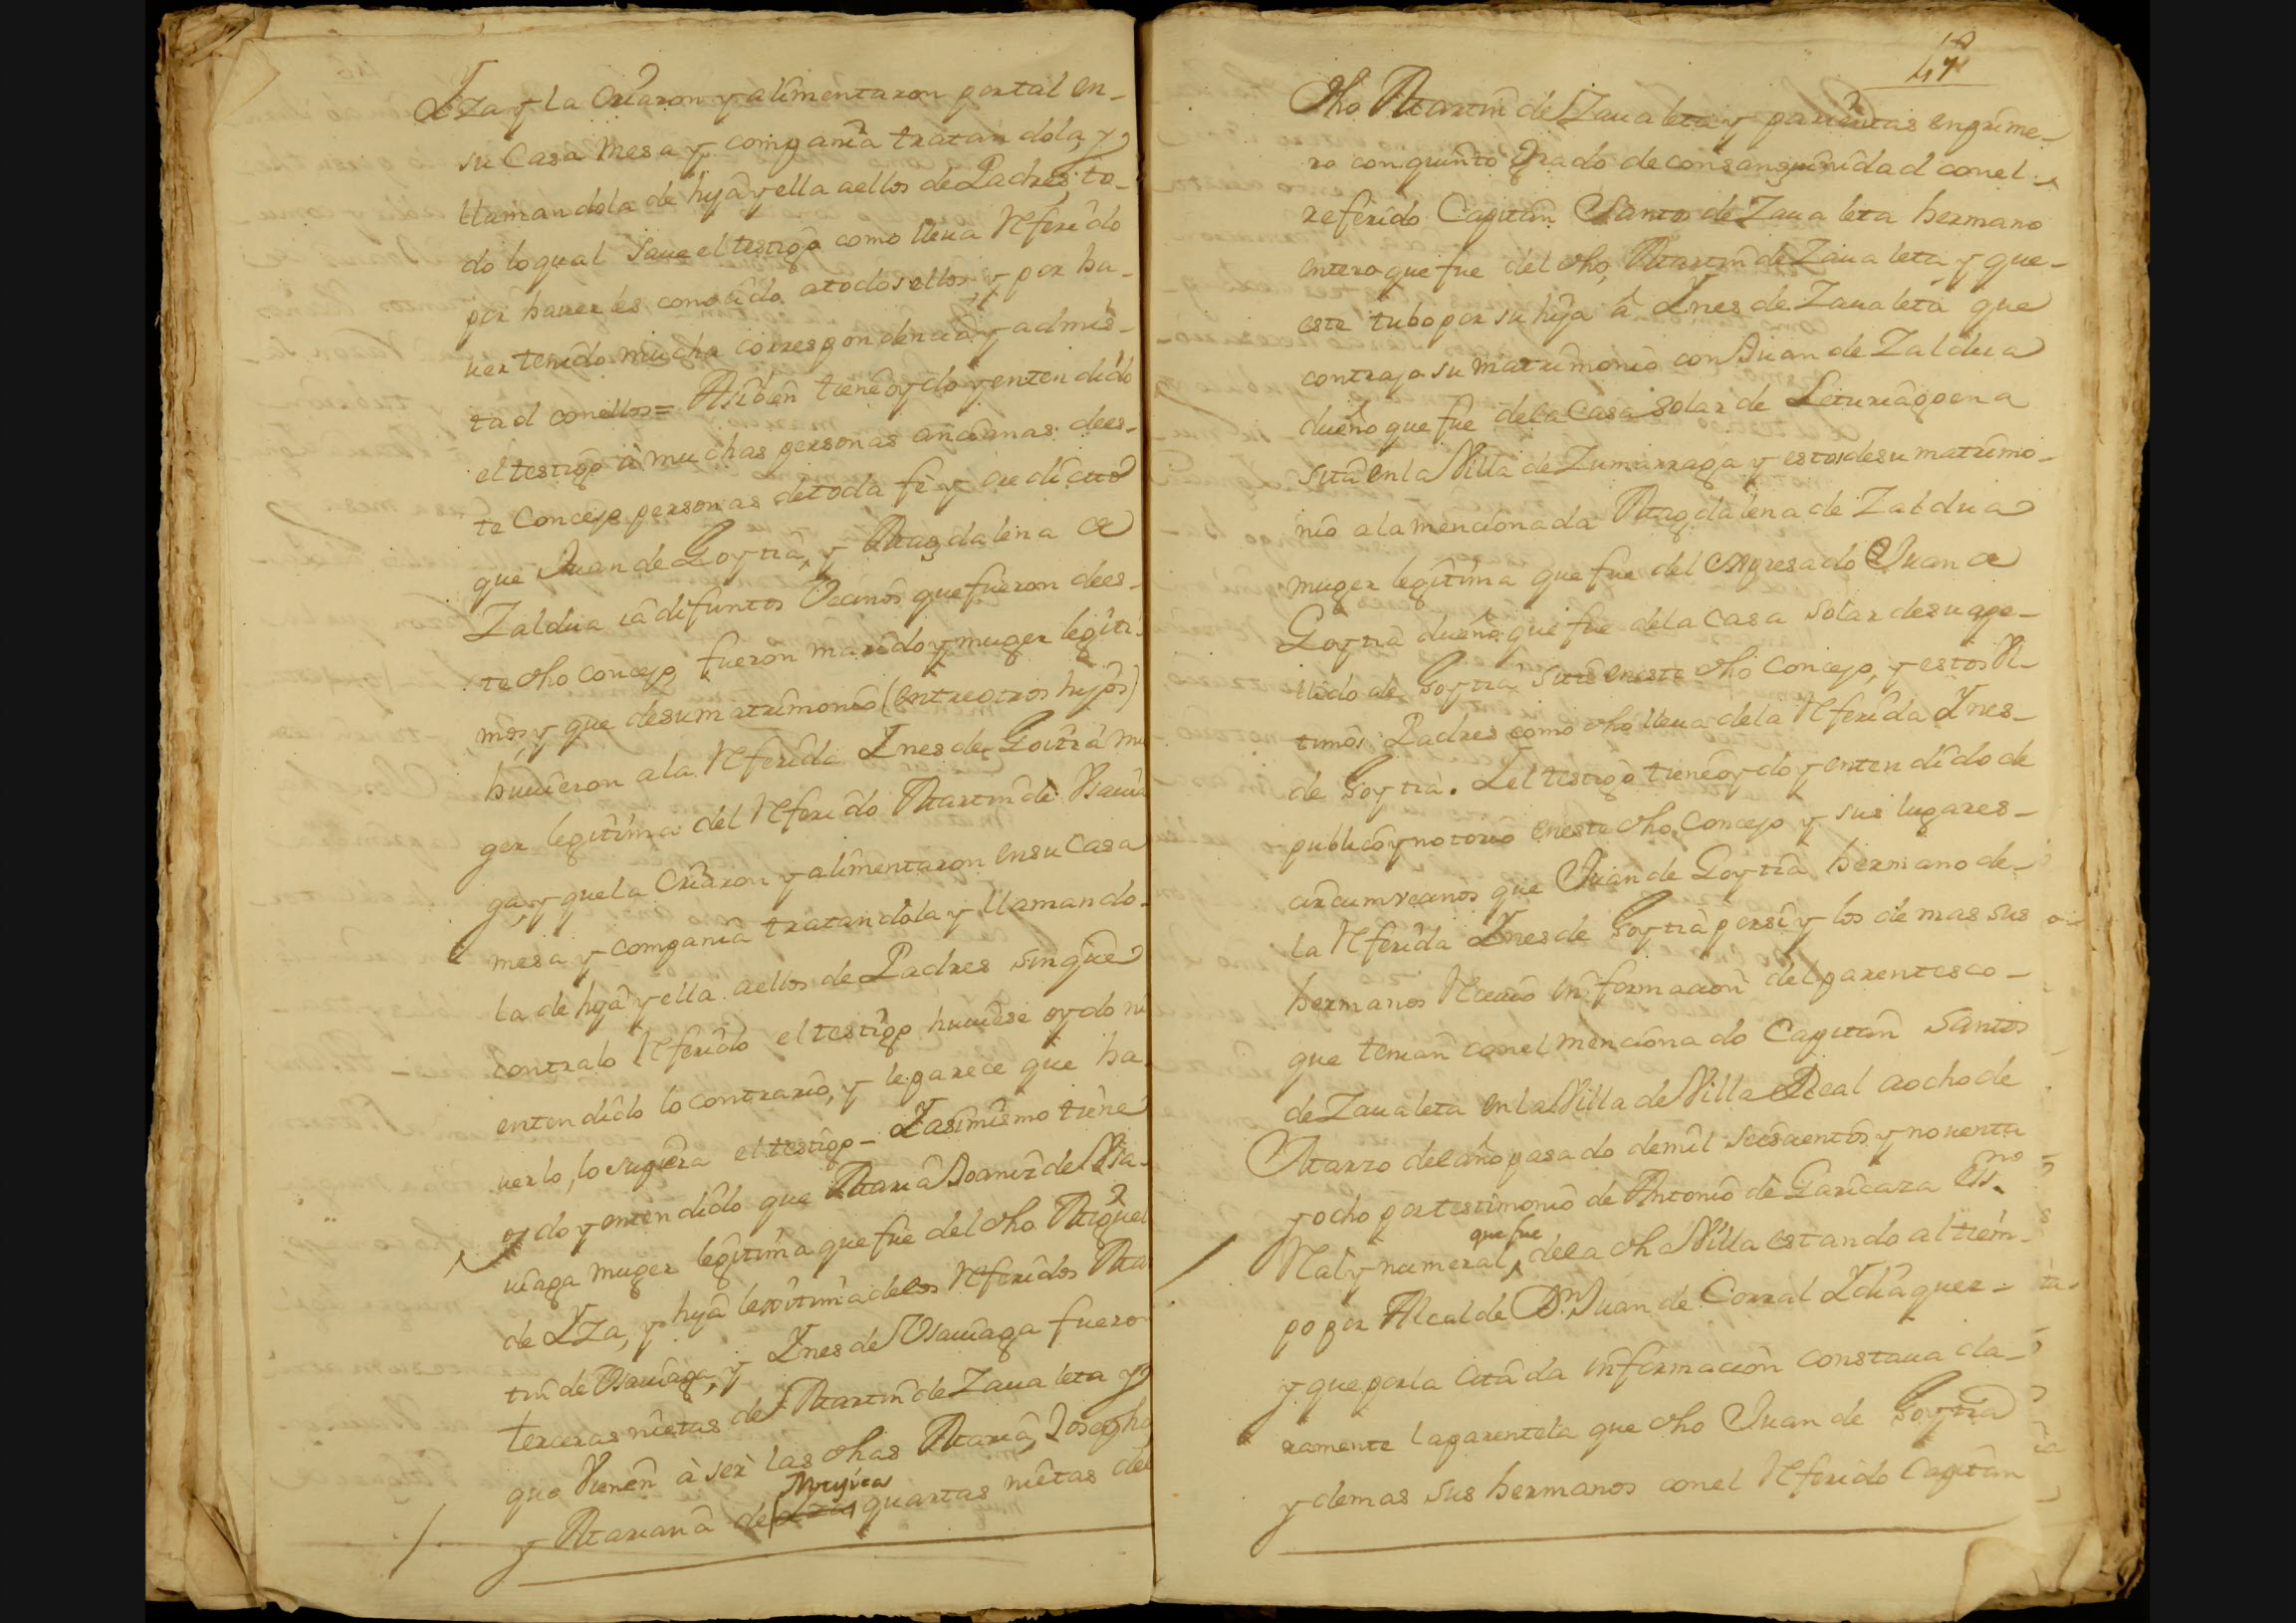 Yza y la Criaron y alimentaron por tal en-
su Casa mesa y compania tratandola, y
llamandola de hija y ella a ellos de Padres to-
do lo qual saue el testigo como lleua Referido
por hauerles conocido a todos ellos y por ha-
uer tenido mucha correspondencia y amis-
tad con ellos = Asi bien tiene oydo y entendido
el testigo à muchas personas ancianas de es-
te Concejo personas de toda fè y credicto
que Juan de Goytia, y Magdalena de
Zaldua ia difuntos Vecinos que fueron de es-
te dho concejo fueron marido y muger legiti-
mos, y que de su matrimonio (entre otros hijos)
huuieron a la Referida Ynes de Goitia mu
ger legitima del Referido Martin de Vsauia
ga, y que la Criaron y alimentaron en su Casa
mesa y compania tratandola y llamando-
la de hija y ella a ellos de Padres sin que
contra lo Referido el testigo huuiese oydo ni
entendido lo contrario, y le parece que ha
uerlo, lo supiera el testigo - Y asimismo tiene
oydo y entendido que Maria Joaniz de Vsa-
uiaga muger legitima que fue del dho Miguel
de Yza, y hija lexitima de los Referidos Mar
tin de Vsauiaga, y Ynes de Vsauiaga fueron
terceras nietas de Martin de Zaualeta y
que Vienen à ser las dhas Maria, Josepha
y Mariana de Muxica quartas nietas del
47
dho Martin de Zaualeta y parientas en prime-
ro con quinto Grado de consanguinidad con el
referido Capitan Santos de Zaualeta hermano
entero que fue del dho Martin de Zaualeta y que
este tubo por su hija â Ynes de Zaualeta que
contrajo su matrimonio con Juan de Zaldua
dueño que fue de la Casa Solar de Leturiagoena
sita en la Villa de Zumarraga y estos de su matrimo-
nio a la mencionada Magdalena de Zaldua
muger legitima que fue del expresado Juan de
Goytia dueño que fue de la Casa Solar de su ape-
llido de Goytia sita en este dho Concejo, y estos le-
timos Padres como dho lleua de la Referida Ynes
de Goytia. Y el testigo tiene oydo y entendido de
publico y notorio en este dho Concejo y sus lugares
circumvecinos que Juan de Goytia hermano de
la Referida Ynes de Goytia por si y los demas sus
hermanos Reciuio informacion del parentesco
que tenian con el mencionado Capitan Santos
de Zaualeta en la Villa de Villa Real a ocho de
Marzo del año pasado de mil seiscientos y nouenta
y ocho por testimonio de Antonio de Garicaza Essno
Rl y numeral que fue de la dha Villa estando al tiem-
po por Alcalde Dn Juan de Corral Ydiaquez
y que por la citada informacion constaua cla-
ramente la parentela que dho Juan de Goytia
y demas sus hermanos con el Referido Capitan